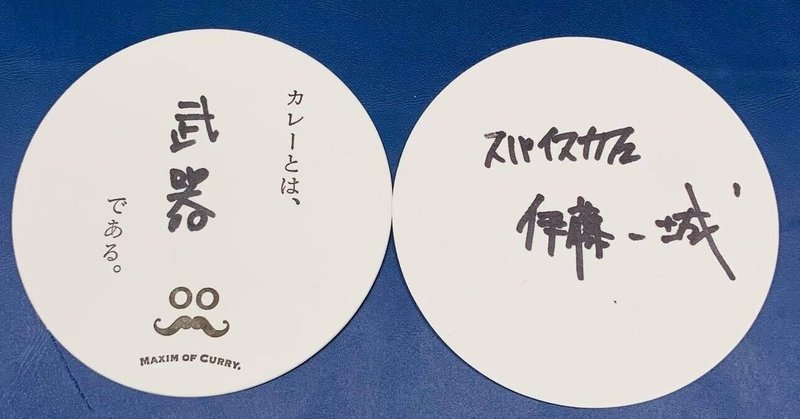 カレーとは、
武器
である。
MAXIM OF CURRY.
スパイスカフェ
伊藤一城